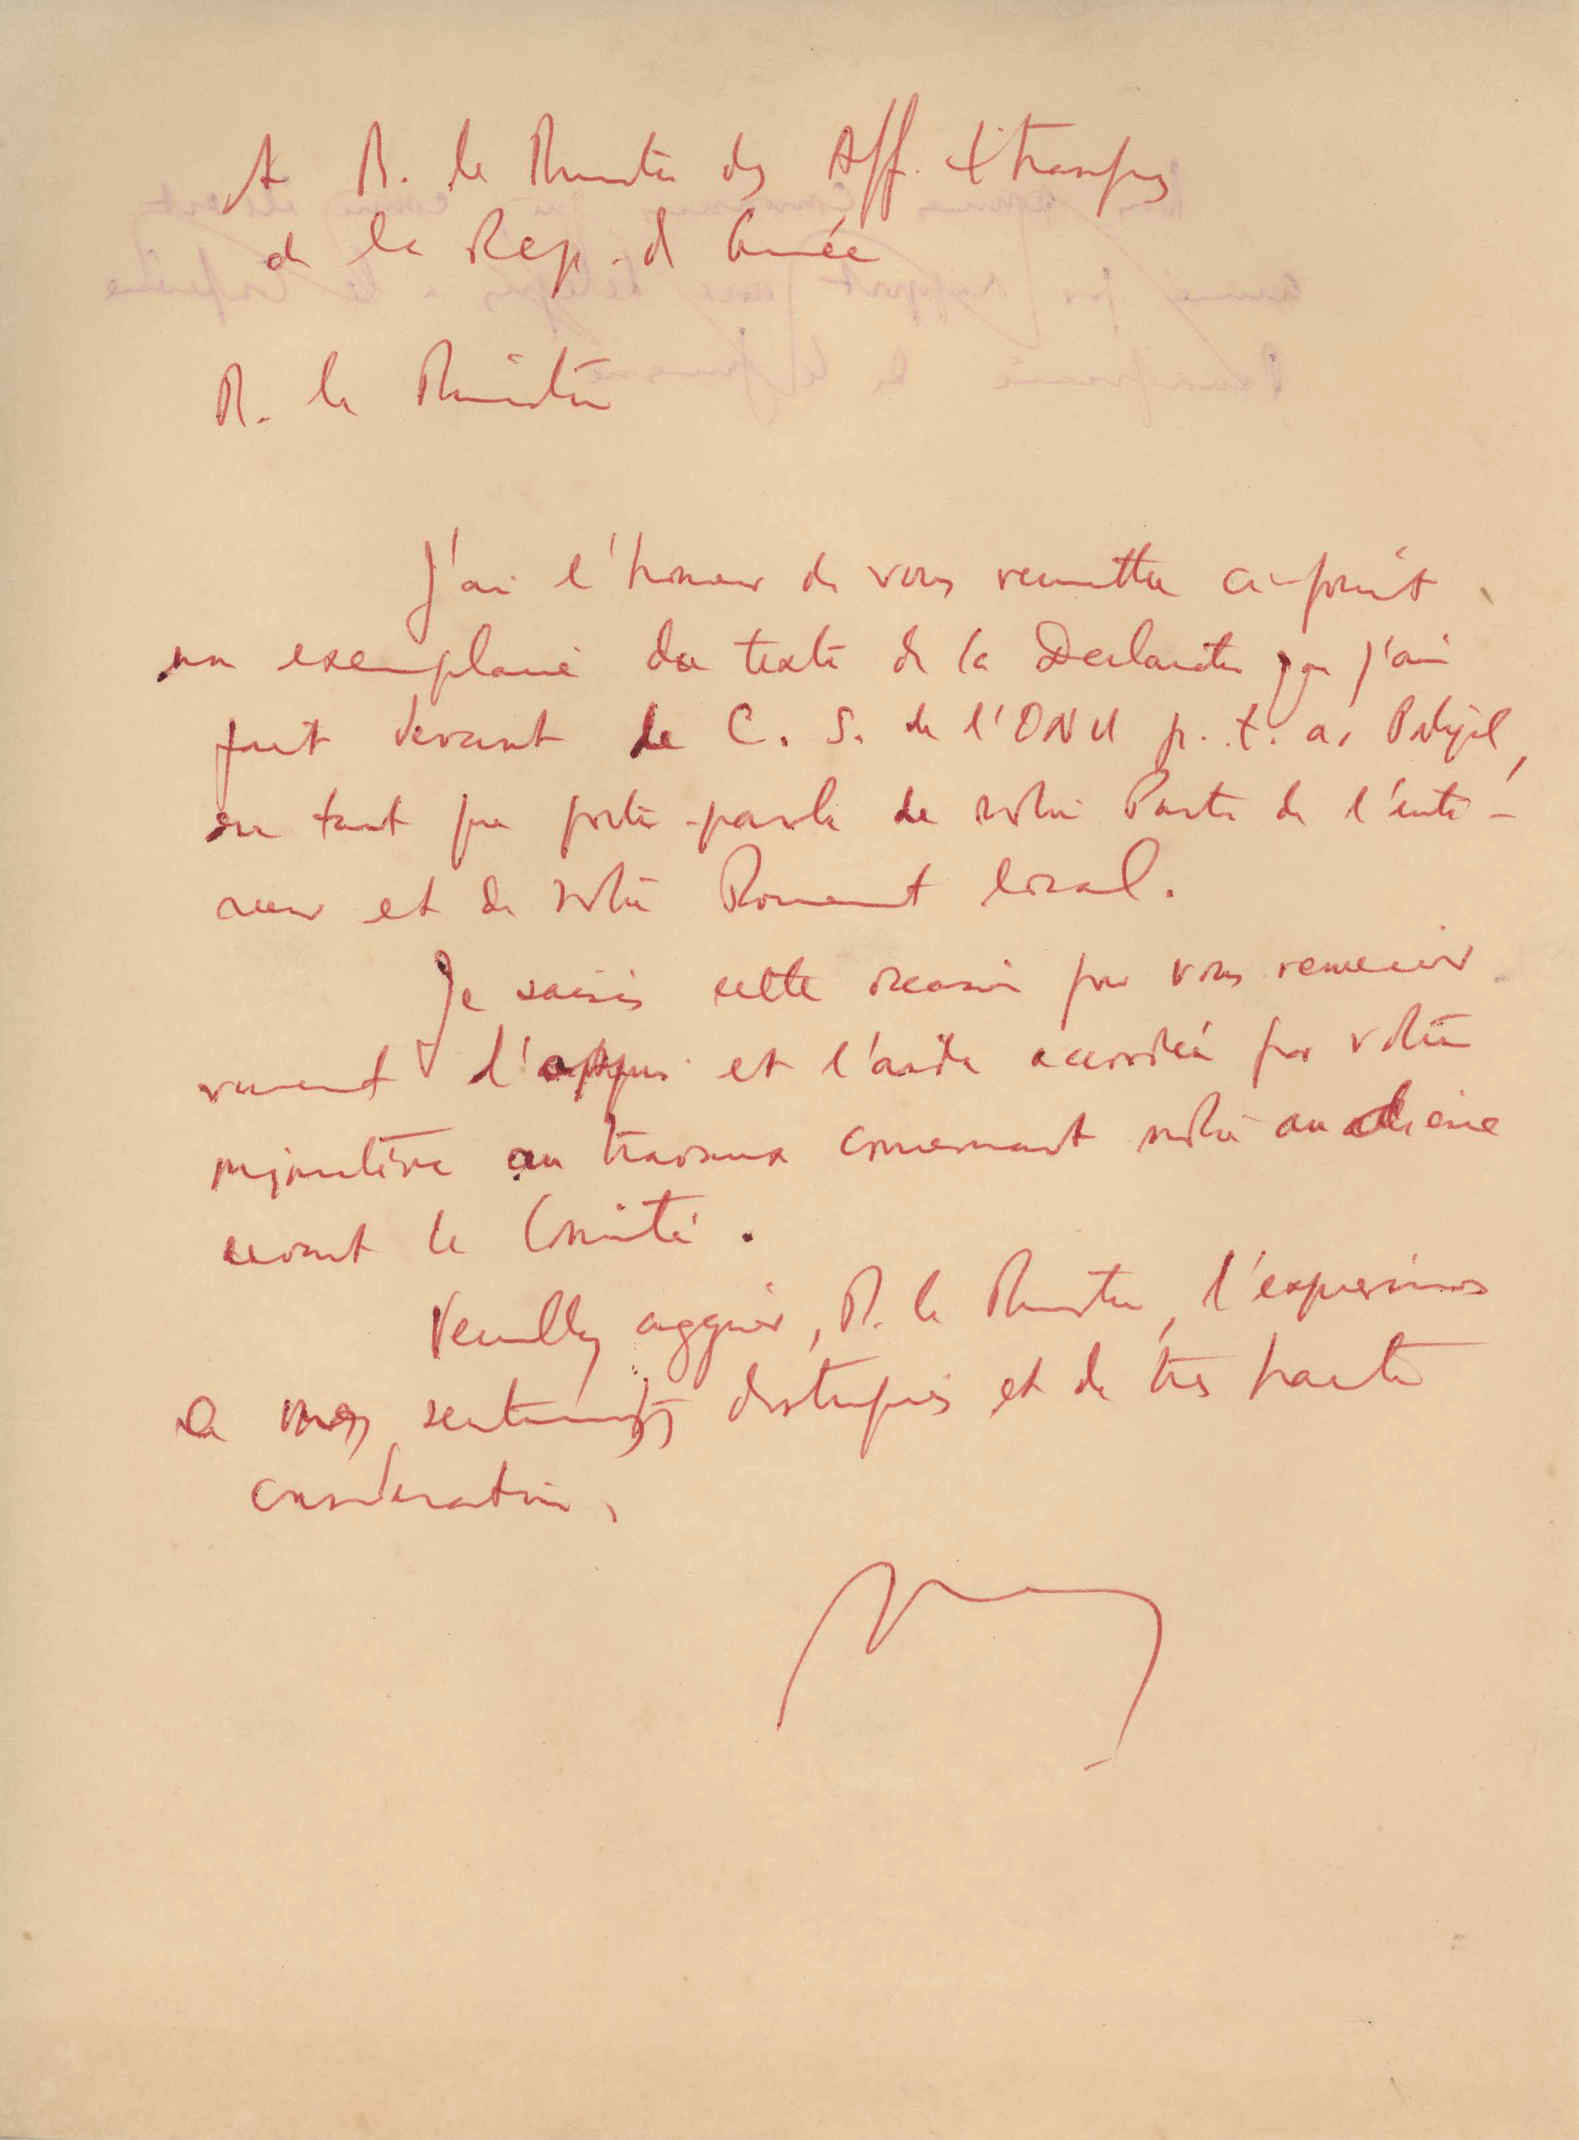 A M. le Ministre des Aff. Etrangères
de la Rep. de Guinée
M. le Ministre
J'ai l'honneur de vous remettre ci-joint
un exemplaire du texte de la Declaration que j'ai
fait devant le C. S. de l'ONU p. t. as Port/gal,
en tant que porte-parole de notre Parti de l'inté-
rieur et de notre Mouvement local.
Je saisis cette occasion pour vous remercier
vivement l'appui et l'aide accordée par votre
ministère au travaux concernant notre audience
devant le Comité.
Veuillez aggréer, M. le Ministre, l'expression
de mes sentiments distingués et de très haute
considération,